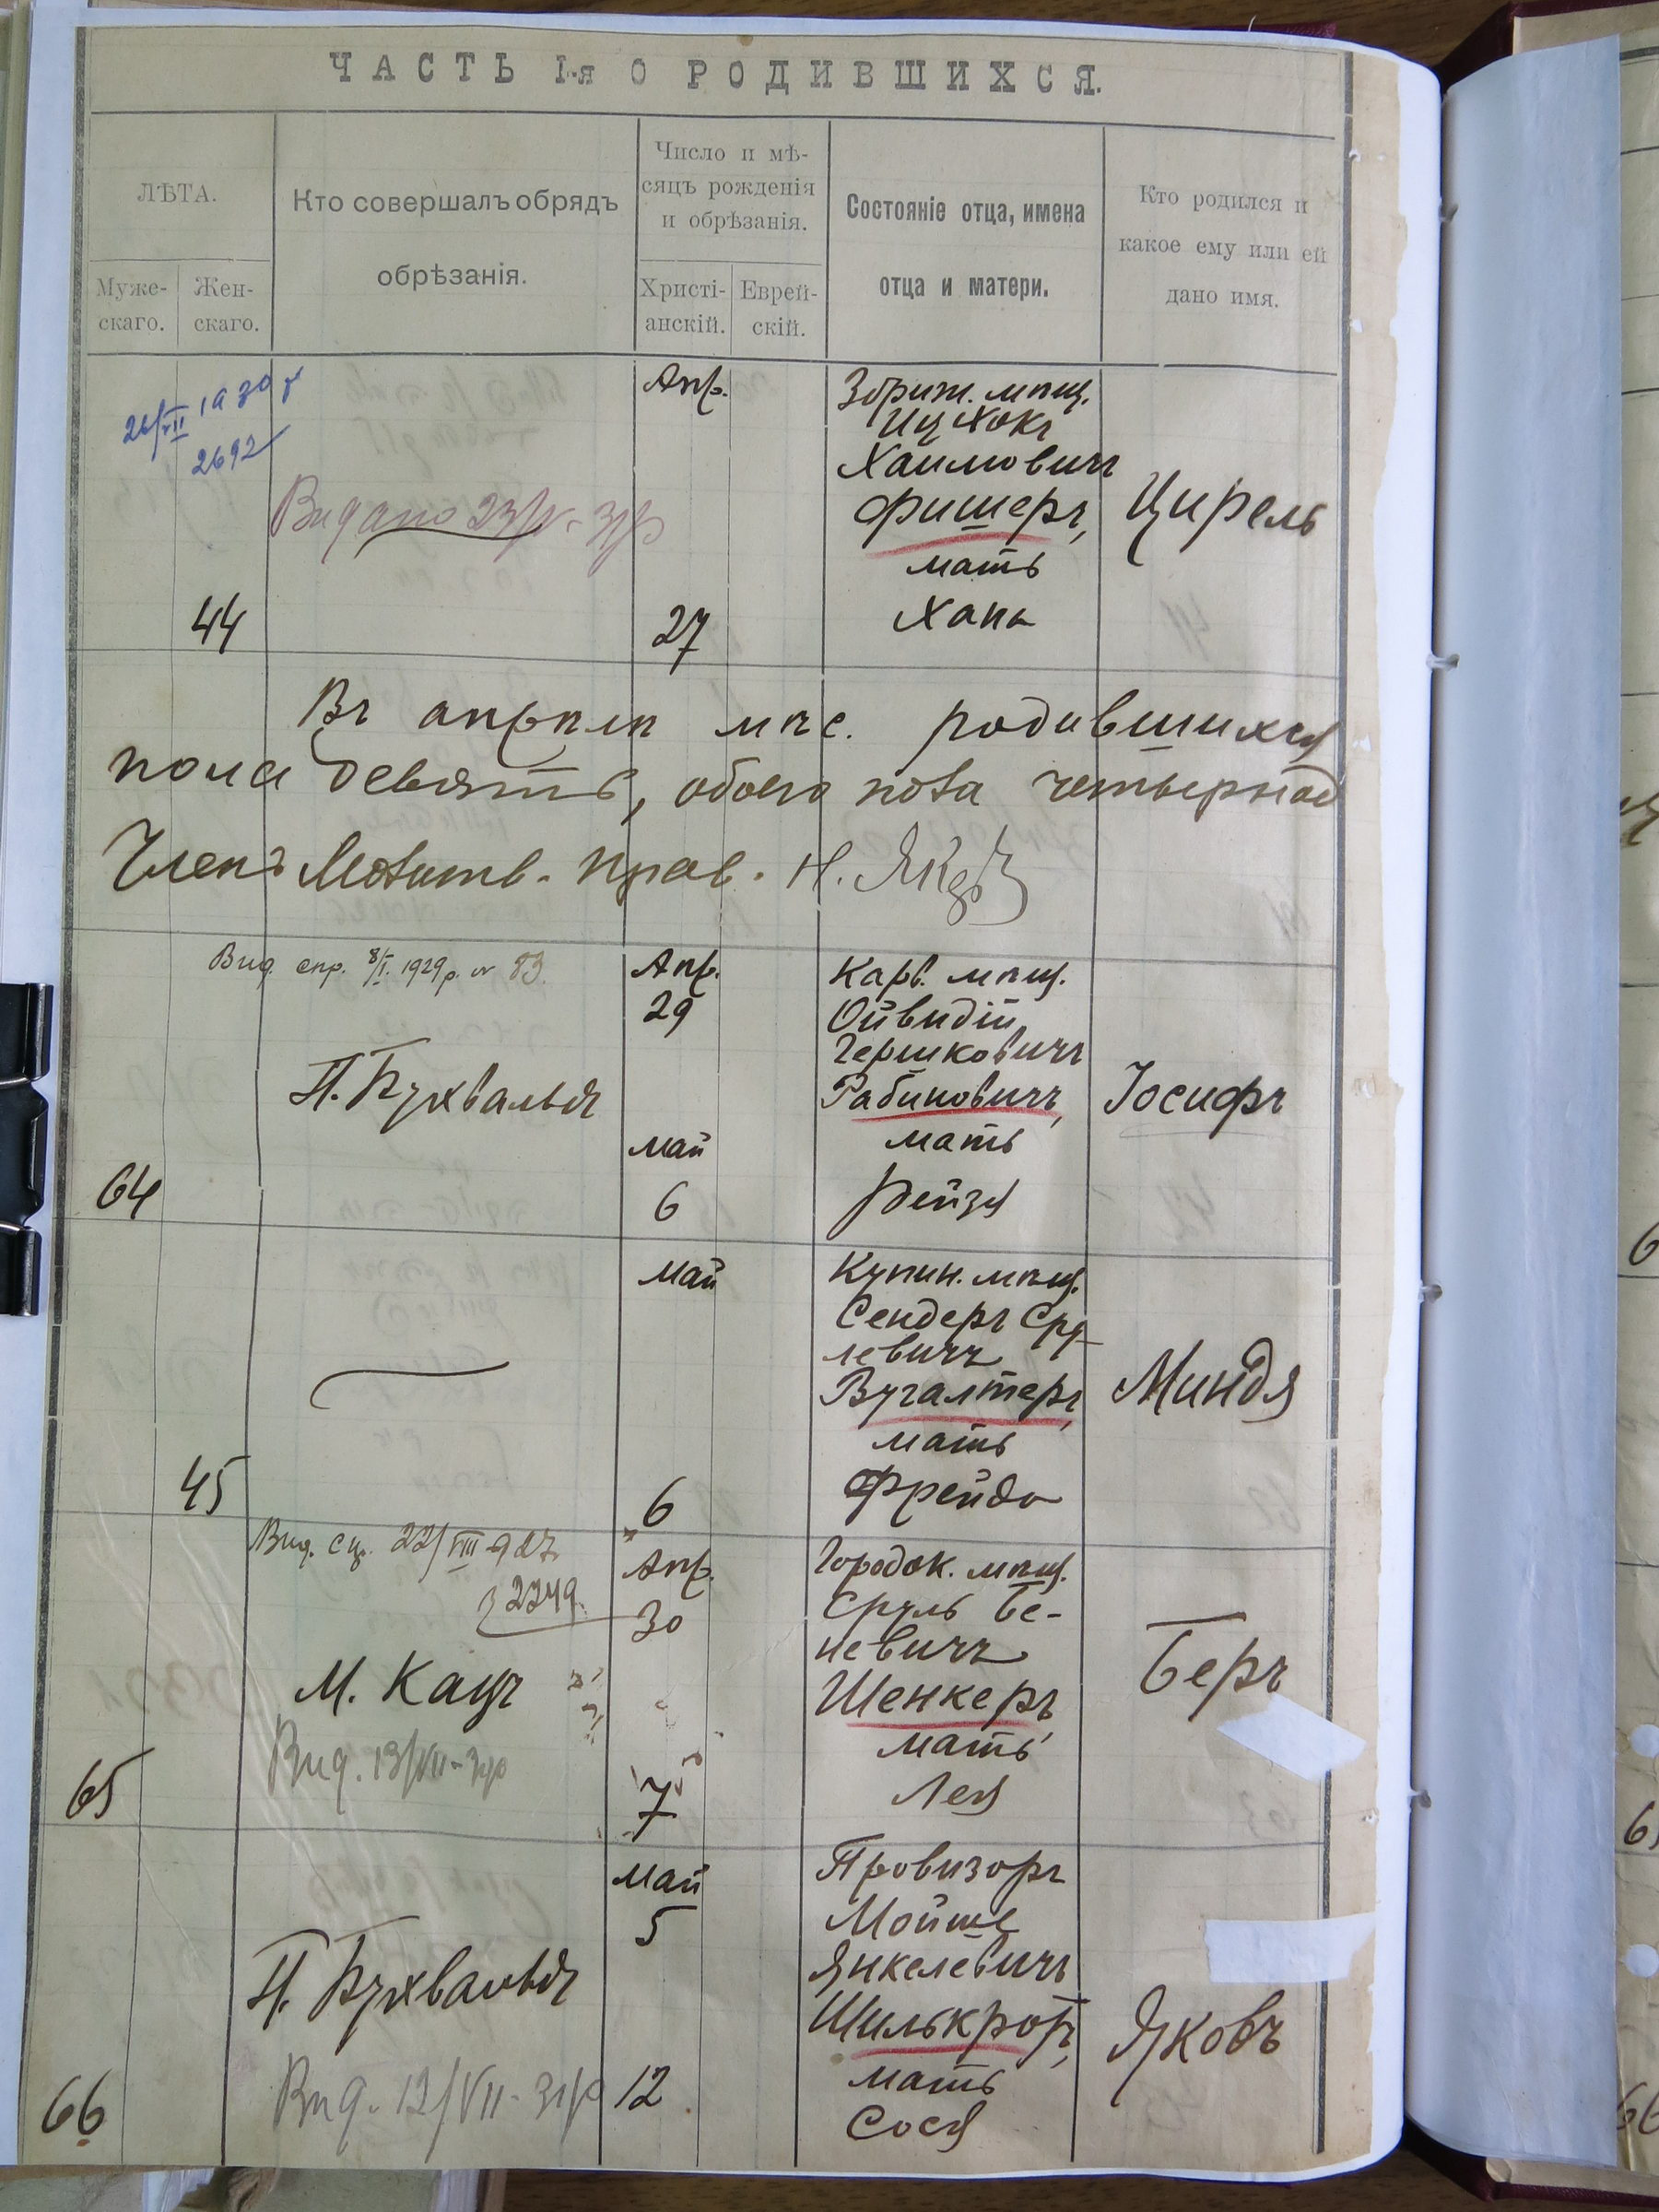 ЧАСТЬ I-я О РОДИВШИХСЯ.
ЛѢТА.
Муже-
скаго.
Жен-
скаго.
Кто совершалъ обрядъ
обрѣзанія.
Число и мѣ-
сяцъ рожденія
и обрѣзанія.
Христі-
анскій.
Еврей-
скій.
Состояніе отца, имена
отца и матери.
Кто родился и
какое ему или ей
дано имя.
26/VII 1930 г
2692
Видано 23/IV - 31р
44
Апр.
27
Збриж. мѣщ.
Ицхокъ
Хаимовичъ
Фишеръ,
мать
Хана
Цирель
Въ апрѣлѣ мѣс. родившихся
пола девять, обоего пола четырнад
Членъ Молитв. Прав. Н.
Вид. спр. 8/I. 1929р. № 83.
64
П. Бухвальдъ
Апр.
29
Май
6
Карв. мѣщ.
Ойвидій
Гершковичъ
Рабиновичъ,
мать
Рейзя
Іосифъ
45
Май
6
Купин. мѣщ.
Сендеръ Сру-
левичъ
Вугалтеръ,
мать
Фрейда
Миндя
Вид. 22/VIII 927
2249
65
М. Кацъ
Вид. 13/VII - 31р
Апр.
30
7
Городок. мѣщ.
Сруль Бе-
невичъ
Шенкеръ,
мать
Лея
Беръ
66
П. Бухвальдъ
Вид. 12/VII - 31р
Май
5
12
Провизоръ
Мойше
Янкелевичъ
Шилькротъ,
мать
Сося
Яковъ